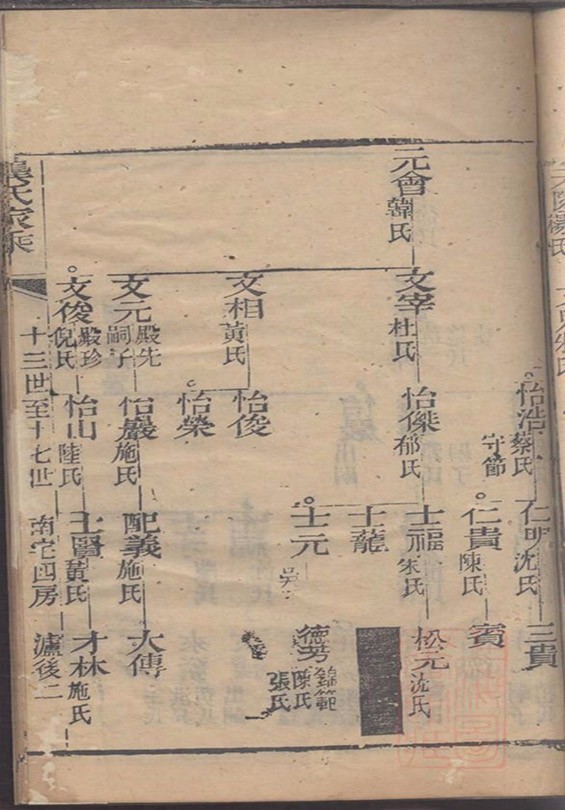 元會 韓氏
文宰 杜氏
文相 黃氏
文元 殿先 嗣子
文俊 殿珍 倪氏
怡浩 蔡氏 守節
怡傑 郁氏
怡俊
怡榮
怡巖 施氏
怡山 陸氏
仁明 沈氏
仁貴 陳氏
士福 朱氏
士龍
士元
配義 施氏
士賢 黃氏
三貴
賓
松元 沈氏
德芳 錦範 陳氏 張氏
大傳
才林 施氏
龔氏家乘
十三世至十七世
南宅四房
瀘後二